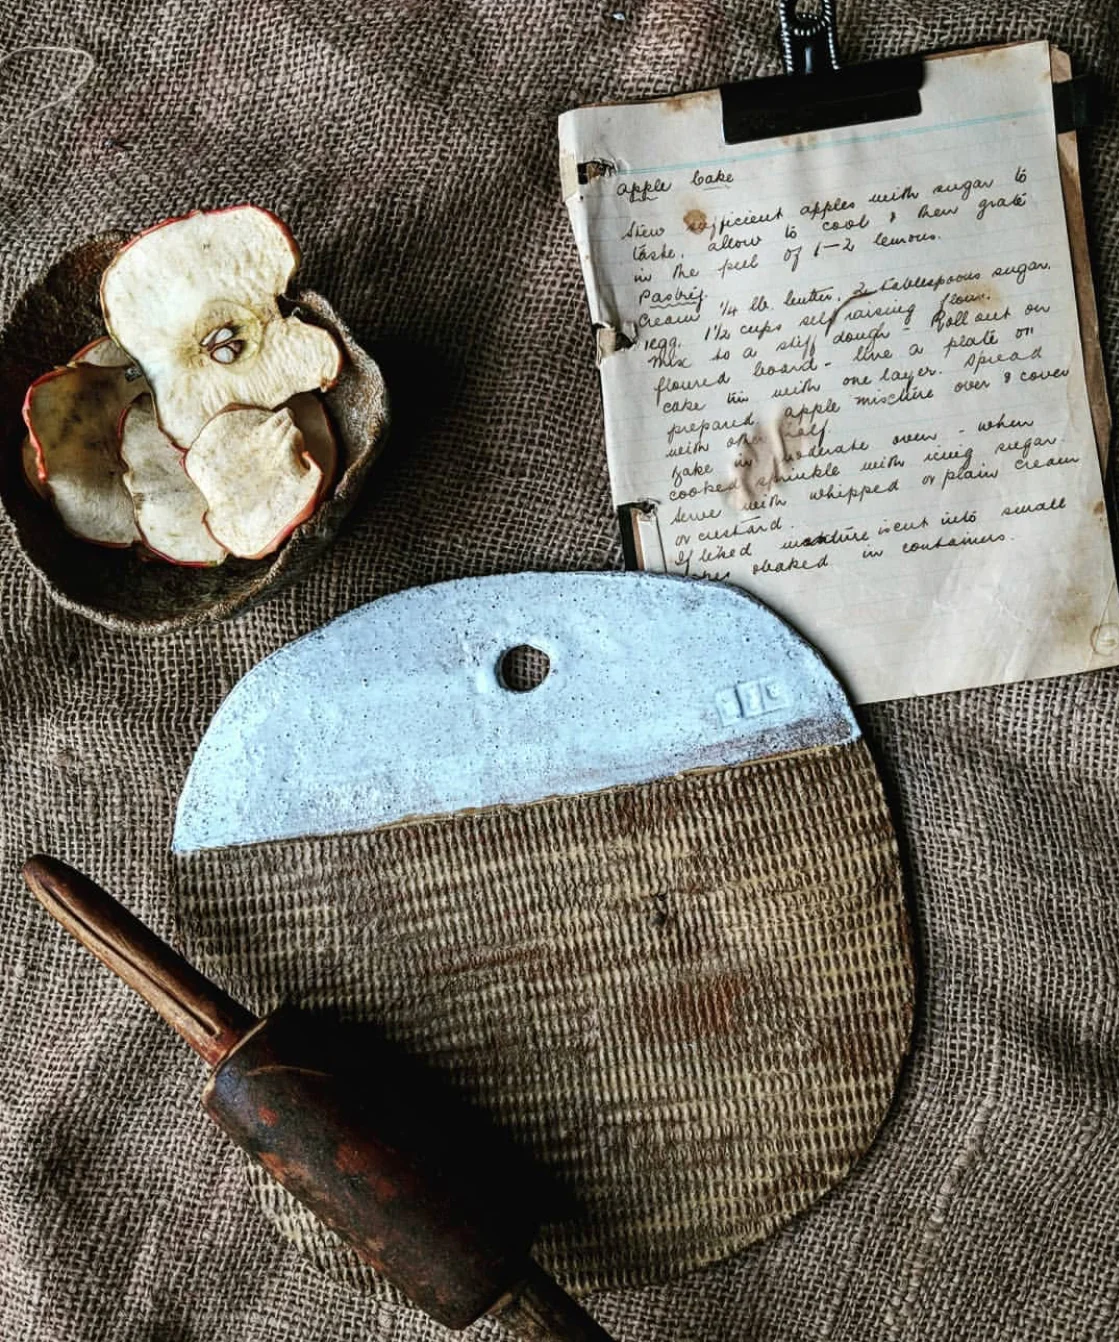 apple cake
Stew sufficient apples with sugar to
taste, allow to cool & then grate
in the peel of 1-2 lemons.
Pastry.
Cream 1/4 lb. butter, 2 tablespoons sugar,
1 egg, 1 1/2 cups self raising flour.
Mix to a stiff dough - Roll out on
floured board - line a plate or
cake tin with one layer. Spread
prepared apple mixture over & cover
with other half.
Bake in moderate oven - when
cooked sprinkle with icing sugar.
Serve with whipped or plain cream
or custard.
If liked is cut into small
baked in containers.